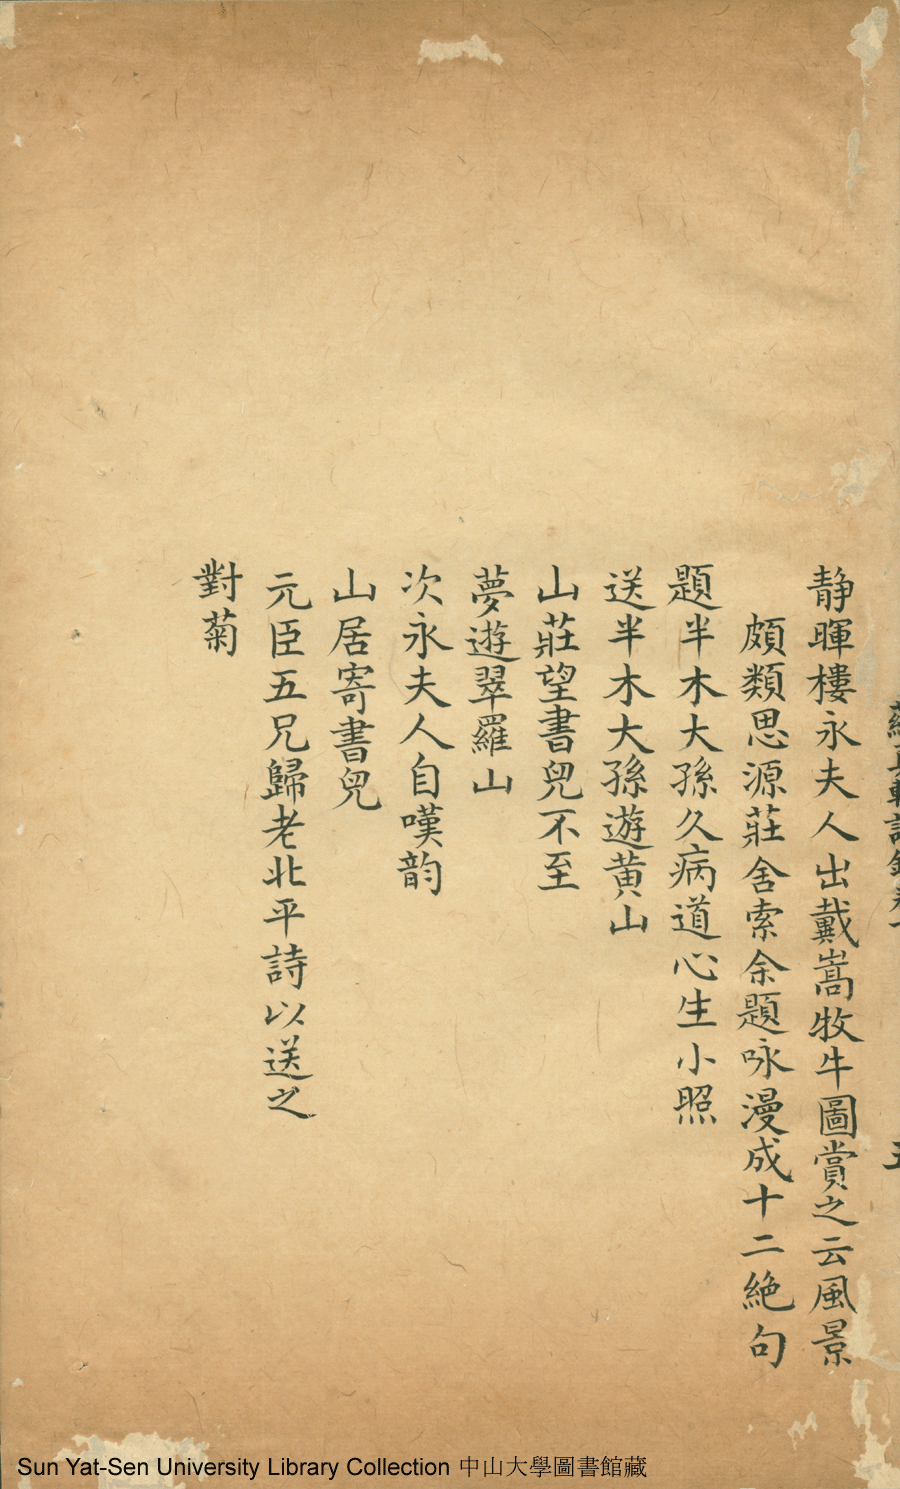 静暉樓永夫人出戴嵩牧牛圖賞之云風景
頗類思源莊舍索余題咏漫成十二絶句
題半木大孫久病道心生小照
送半木大孫遊黄山
山莊望書兒不至
夢遊翠羅山
次永夫人自嘆韵
山居寄書兒
元臣五兄歸老北平詩以送之
對菊
Sun Yat-Sen University Library Collection 中山大學圖書館藏